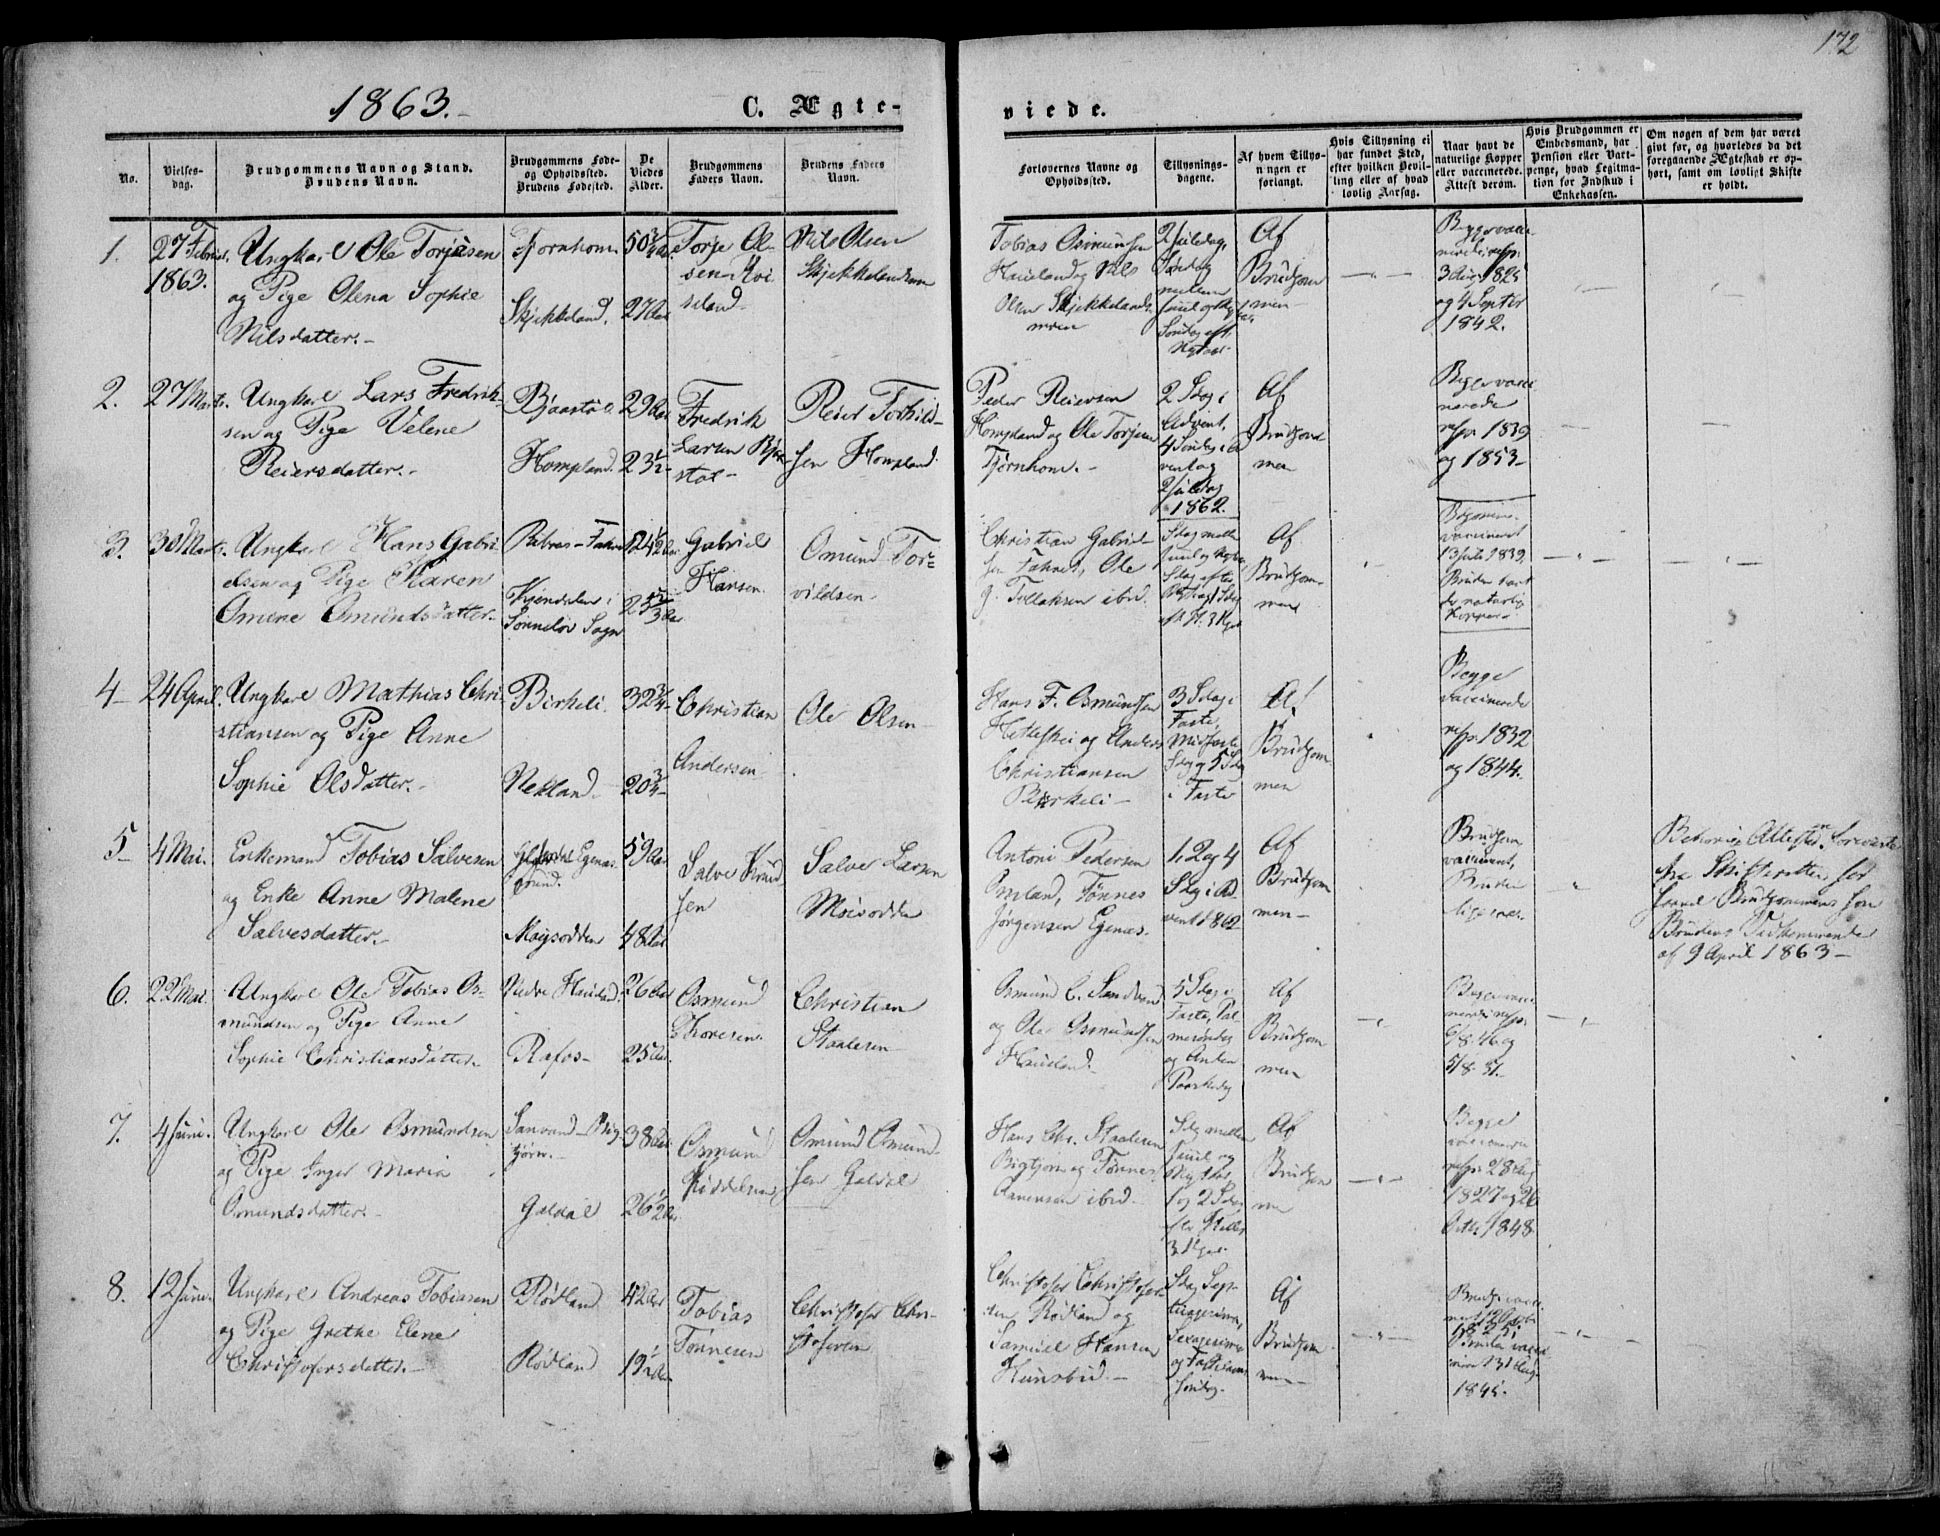 172
1863.
C. Ægte-
viede.
No.
Vielses-
dag.
Brudgommens Navn og Stand.
Brudens Navn.
Brudgommens Føde-
og Opholdssted.
Brudens Fødested.
De
Viedes
Alder.
Brudgommens
Faders Navn.
Brudens Faders
Navn.
Forlovernes Navne og
Opholdssted.
Tillysnings-
dagene.
Af hvem Tillys-
ningen er
forlangt.
Hvis Tillysning ei
har fundet Sted,
efter hvilken Bevil-
ling eller af hvad
lovlig Aarsag.
Naar havt de
naturlige Kopper
eller vaccinerede.
Attest derom.
Hvis Brudgommen er
Embedsmand, har
Pension eller Vart-
penge, hvad Legitma-
tion for Indskud i
Enkekassen.
Om nogen af dem har været
givt før, og hvorledes da det
foregaaende Ægteskab er op-
hørt, samt om lovligt Skifte
er holdt.
1.
27 Februar
1863.
Ungkarl Ole Torjesen
og Pige Olena Sophie
Nilsdatter.
Tjørnhom
Skjekkeland.
50 3/4 Aar
27 Aar
Torje Ol-
sen Kvi-
seland
Nils Olsen
Skjekkelandsmoen
Tobias Osmundsen
Haueland og Nils
Olsen Skjekkelands-
moen
2 Juledag,
Søndag
mellem
Juul og Nytaar,
Søndag eft.
Nytaar
Af
Brudgom
men
Begge vacci
nerede resp.
3 Aug. 1825
og 4 Septbr
1842.
2.
27 Marts.
Ungkarl Lars Fredrik-
sen og Pige Velene
Reiersdatter.
Bjaastøl
Hompland
29 Aar
23 1/2
Fredrik
Larsen Bjaa-
støl
Reier Torkild-
sen Hompland
Peder Reiersen
Hompland og Ole Torjesen
Tjørnhom.
2 Sdag i
Advent,
4 Søndag i Ad
vent og
2 Juledag
1862.
Af
Brudgom
men
Begge vacci
nerede
resp. 1839
og 1853
3.
30 Marts.
Ungkarl Hans Gabri-
elsen og Pige Karen
Omine Omundsdatter
24 1/2 Aar
Sønneløv Sogn
Gabriel
Hansen.
Omund Tor-
vildsen
Christian Gabriel-
sen Ole
G. Tollaksen ibid.
Af
Brudgom-
men
vaccineret
1839.
Bruden havt
de naturlige
Kopper
4
24 April.
Ungkarl Mathias Chri-
stiansen og Pige Anne
Sophie Olsdatter.
Birkeli
Nekland
32 3/4
20 3/4
Christian
Andersen
Ole Olsen
Hans F. Osmundsen
og Anders
Christiansen
Birkeli
3 Sdag i
Faste,
Midfaste
Sdag og 5 Sdag
i Faste
Af
Brudgom
men
Begge
vaccinerede
resp. 1832
og 1844.
5
4 Mai.
Enkemand Tobias Salvesen
og Enke Anne Malene
Salvesdatter.
Egenæs
Moisodden
59 Aar
48 Aar
Salve Knud-
sen
Salve Larsen
Moisodden
Antoni Pedersen
Omland, Tønnes
Jørgensen Egenæs.
1. 2 og 4
Sdag i Ad
vent 1862
Af
Brudgom
men
Brudgom.
vaccineret,
Bruden
ligesaa.
Behørige Attester forevist
fra Skifteretten for
saavel Brudgommens som
Brudens Vedkommende
af 9 April 1863
6.
22 Mai.
Ungkarl Ole Tobias Os-
mundsen og Pige Anne
Sophie Christiansdatter
Nedre Haueland
Rafos
26 Aar
25 Aar
Osmund
Thoresen
Christian
Staalesen
Osmund C. Sandvand
og Ole Osmundsen
Haueland
5 Sdag i
Faste, Pal
mesøndag
og Anden
Paaskedag
Af
Brudgom
men
Begge vacci
nerede resp.
6/8 46 og
5/8 51.
7.
4 Juni.
Ungkarl Ole Osmundsen
og Pige Inger Maria
Omundsdatter
Sanvand Big-
tjørn.
Galdal
38 Aar
26 1/2 Aar
Osmund
Omund Omund-
sen Galdal
Hans Chr. Staalesen
Bigtjørn og Tønnes
Aanensen ibid
Sdag mellem
Juul og
Nytaar,
1 og 2 Sdag
efter Hellig
3 Kgr.
Af
Brudgom
men
Begge
vaccinerede
resp. 28 Aug
1827 og 26
Octbr 1848
8.
12 Juni.
Ungkarl Andreas Tobiasen
og Pige Grethe Elene
Christofersdatter.
Rødland
Rødland
42 Aar
19 1/2 Aar
Tobias
Tønnesen
Christofer Chri-
stofersen
Christofer Christofer-
sen Rødland og
Samuel Hansen
Hunsbid.
Sdag Sep-
tuagesima,
Sexagesima
og Fastelavns
Søndag.
Af
Brudgom
men
1825,
Bruden vacci
1845.